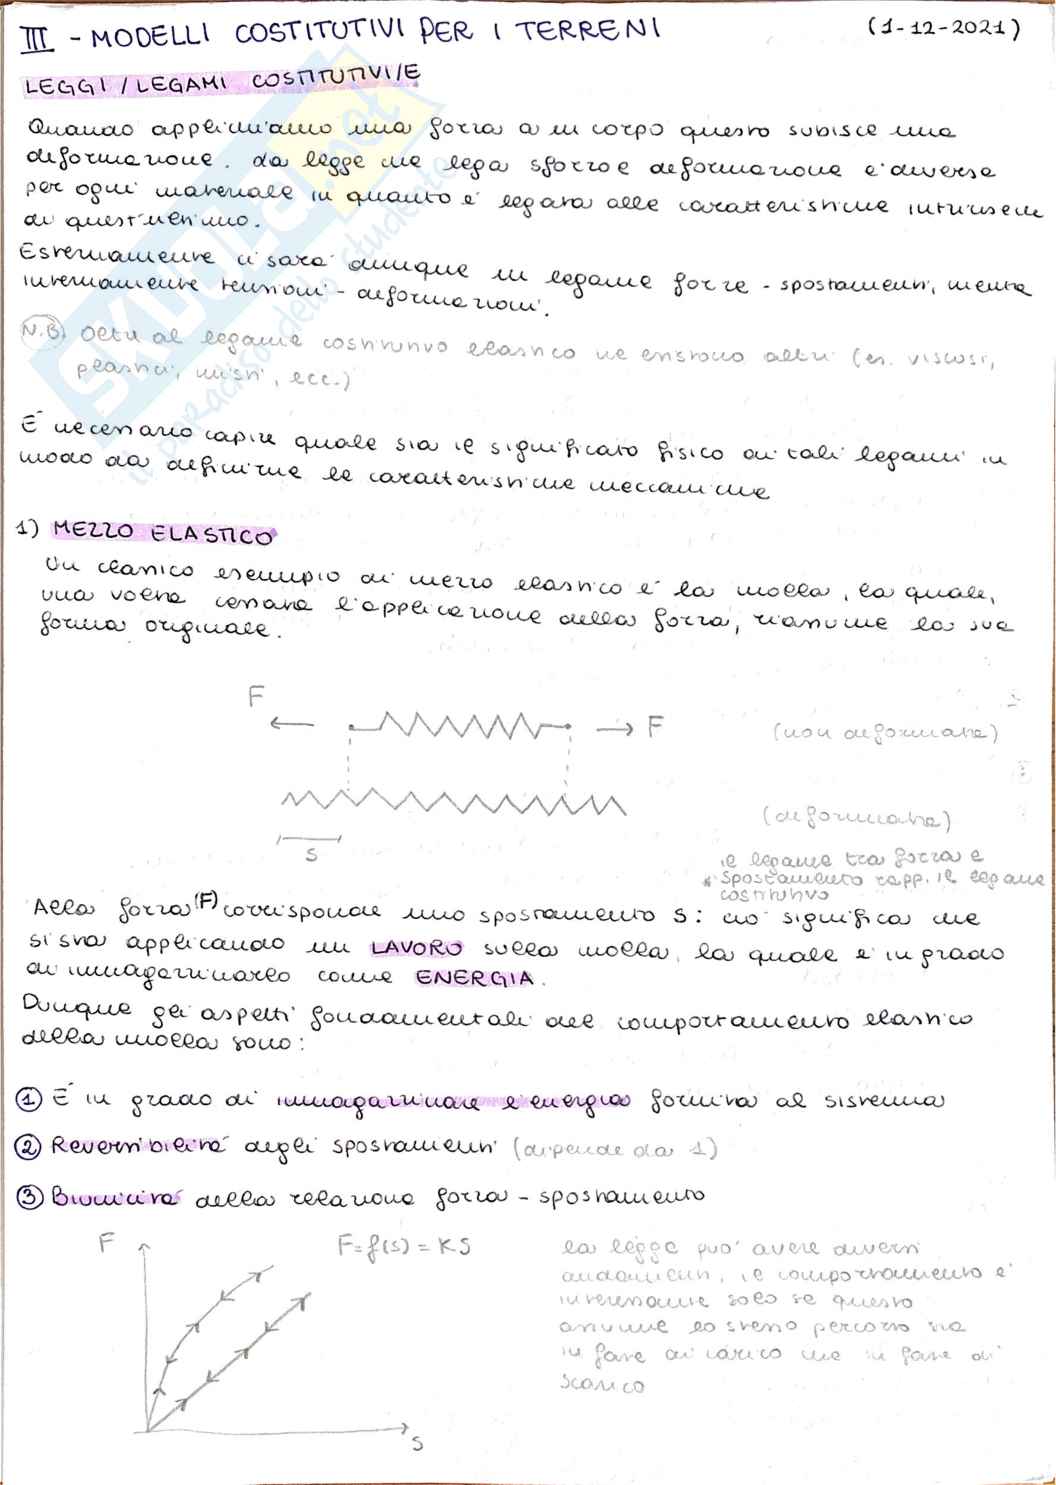 III - MODELLI COSTITUTIVI PER I TERRENI (1-12-2021)
LEGGI / LEGAMI COSTITUTIVI/E
Quando applichiamo una forza a un corpo questo subisce una
deformazione. La legge che lega sforzo e deformazione è diversa
per ogni materiale in quanto è legata alle caratteristiche intrinseche
di quest'ultimo.
Esternamente ci sarà dunque un legame forze - spostamenti, mentre
internamente tensioni - deformazioni.
N.B. Oltre al legame costitutivo elastico ne esistono altri (es. viscosi,
plastici, misti, ecc.)
È necessario capire quale sia il significato fisico di tali legami in
modo da definirne le caratteristiche meccaniche
1) MEZZO ELASTICO
Un classico esempio di mezzo elastico è la molla, la quale,
una volta cessata l'applicazione della forza, riassume la sua
forma originale.
F
F (non deformata)
(deformata)
S
il legame tra forza e
spostamento rapp. il legame
costitutivo
Alla forza (F) corrisponde uno spostamento S: ciò significa che
si sta applicando un LAVORO sulla molla, la quale è in grado
di immagazzinarlo come ENERGIA.
Dunque gli aspetti fondamentali del comportamento elastico
della molla sono:
1 È in grado di immagazzinare e energia fornita al sistema
2 Reversibilità degli spostamenti (dipende da 1)
3 Biunicità della relazione forza - spostamento
F F=f(s) = KS
la legge può avere diversi
andamenti, il comportamento è
interessante solo se questo
assume lo stesso percorso sia
in fase di carico che in fase di
scarico
S
SKUOLA.net
il paradiso dello studente